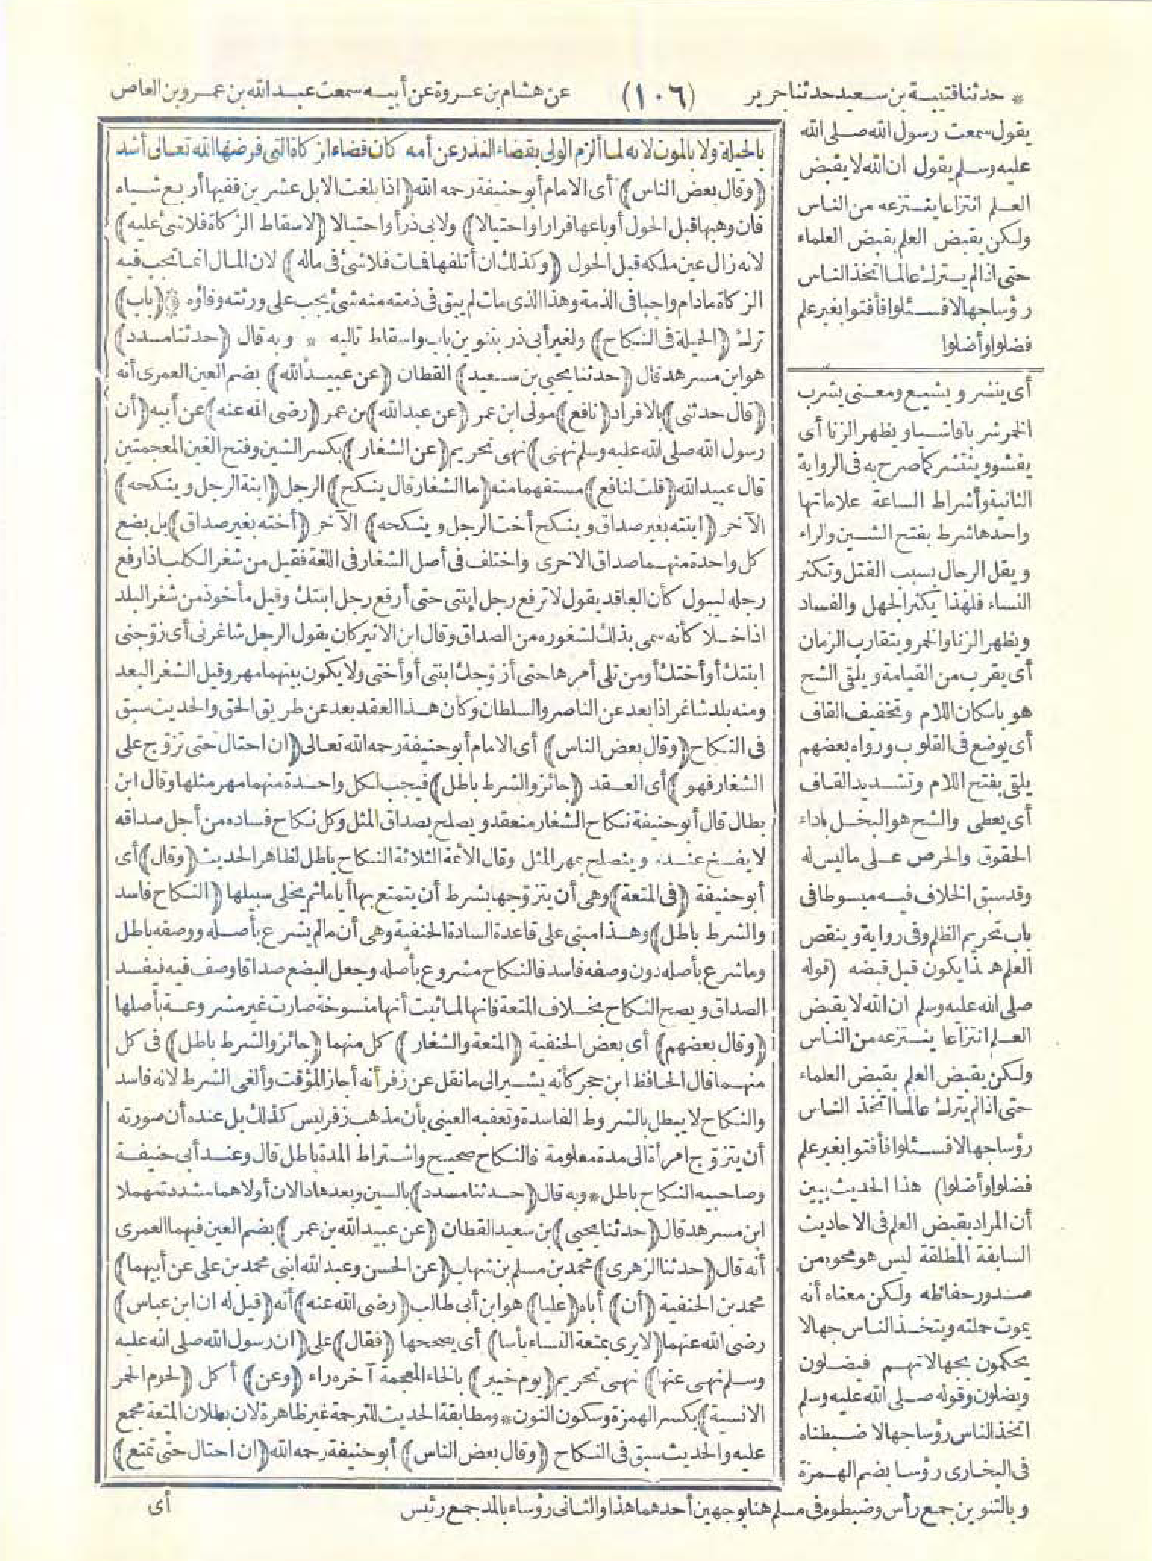 * حدثنا قتيبة بن سعيد حدثنا جرير (١٠٦) عن هشام بن عروة عن أبيه سمعت عبد الله بن عمرو بن العاص
يقول سمعت رسول الله صلى الله
عليه وسلم يقول ان الله لا يقبض
العلم انتزاعا ينتزعه من الناس
ولكن يقبض العلم بقبض العلماء
حتى اذا لم يترك عالما اتخذ الناس
رؤسا جهالا فسئلوا فأفتوا بغير علم
فضلوا وأضلوا
أى ينشر ويشيع ومعنى يشرب
الخمر شربا فاشيا ويظهر الزنا أى
يفشو وينتشر كما صرح به فى الرواية
الثانية وأشراط الساعة علاماتها
واحدها شرط بفتح الشين والراء
ويقل الرجال بسبب القتل وتكثر
النساء فلهذا يكثر الجهل والفساد
ويظهر الزنا والخمر ويتقارب الزمان
أى يقرب من القيامة ويلقى الشح
هو باسكان اللام وتخفيف القاف
أى يوضع فى القلوب ورواه بعضهم
يلقى بفتح اللام وتشديد القاف
أى يعطى والشح هو البخل باداء
الحقوق والحرص على ماليس له
وقد سبق الخلاف فيه مبسوطا فى
باب تحريم الظلم وفى رواية وينقص
العلم هذا يكون قبل قبضه (قوله
صلى الله عليه وسلم ان الله لا يقبض
العلم انتزاعا ينتزعه من الناس
ولكن يقبض العلم بقبض العلماء
حتى اذا لم يترك عالما اتخذ الناس
رؤسا جهالا فسئلوا فأفتوا بغير علم
فضلوا وأضلوا) هذا الحديث يبين
أن المراد بقبض العلم فى الاحاديث
السابقة المطلقة ليس هو محوه من
صدور حفاظه ولكن معناه أنه
يموت حملته ويتخذ الناس جهالا
يحكمون بجهالاتهم فيضلون
ويضلون وقوله صلى الله عليه وسلم
اتخذ الناس رؤسا جهالا ضبطناه
فى البخارى رؤسا بضم الهمزة
وبالتنوين جمع رأس وضبطوه فى مسلم هنا بوجهين أحدهما هذا والثانى رؤساء بالمد جمع رئيس
بالحيلة ولا بالموت لانه لما ألزم الولى بقضاء النذر عن أمه كان قضاء الزكاة التى فرضها الله تعالى أشد
(وقال بعض الناس) أى الامام أبو حنيفة رحمه الله (اذا بلغت الابل عشرين ففيها أربع شياه
فان وهبها قبل الحول أو باعها فرارا واحتيالا) ولابى ذر أو احتيالا (لاسقاط الزكاة فلا شئ عليه)
لانه زال عن ملكه قبل الحول (وكذلك ان أتلفها فمات فلا شئ فى ماله) لان المال انما تجب فيه
الزكاة مادام واجبا فى الذمة وهذا الذى مات لم يبق فى ذمته منه شئ يجب على ورثته وفاؤه (باب)
ترك (الحيلة فى النكاح) ولغير أبى ذر بتنوين باب واسقاط تاليه * وبه قال (حدثنا مسدد)
هو ابن مسرهد قال (حدثنا يحيى بن سعيد) القطان (عن عبيد الله) بضم العين العمرى أنه
(قال حدثنى) بالافراد (نافع) مولى ابن عمر (عن عبد الله) بن عمر (رضى الله عنه) عن أبيه (أن
رسول الله صلى الله عليه وسلم نهى) نهى تحريم (عن الشغار) بكسر الشين وفتح الغين المعجمتين
قال عبيد الله (قلت لنافع) مستفهما منه (ما الشغار قال ينكح) الرجل (ابنة الرجل وينكحه)
الآخر (ابنته بغير صداق وينكح أخت الرجل وينكحه) الآخر (أخته بغير صداق) بل بضع
كل واحدة منهما صداق الاخرى واختلف فى أصل الشغار فى اللغة فقيل من شغر الكلب اذا رفع
رجله ليبول كأن العاقد يقول لا ترفع رجل ابنتى حتى أرفع رجل ابنتك وقيل مأخوذ من شغر البلد
اذا خلا كأنه سمى بذلك لشغوره من الصداق وقال ابن الاثير كان يقول الرجل شاغرنى أى زوجنى
ابنتك أو أختك أو من تلى أمرها حتى أزوجك ابنتى أو أختى ولا يكون بينهما مهر وقيل الشغر البعد
ومنه بلد شاغر اذا بعد عن الناصر والسلطان وكأن هذا العقد بعد عن طريق الحق والحديث سبق
فى النكاح (وقال بعض الناس) أى الامام أبو حنيفة رحمه الله تعالى (ان احتال حتى تزوج على
الشغار فهو) أى العقد (جائز والشرط باطل) فيجب لكل واحدة منهما مهر مثلها وقال ابن
بطال قال أبو حنيفة نكاح الشغار منعقد ويصلح بصداق المثل وكل نكاح فساده من أجل صداقه
لا يفسخ عنده وينصلح بمهر المثل وقال الأئمة الثلاثة النكاح باطل لظاهر الحديث (وقال) أى
أبو حنيفة (فى المتعة) وهى أن يتزوجها بشرط أن يتمتع بها أياما ثم يخلى سبيلها (النكاح فاسد
والشرط باطل) وهذا مبنى على قاعدة السادة الحنفية وهى أن مالم يشرع بأصله ووصفه باطل
وما شرع بأصله دون وصفه فاسد فالنكاح مشروع بأصله وجعل البضع صداقا وصف فيه فيفسد
الصداق ويصح النكاح بخلاف المتعة فانها لما ثبت أنها منسوخة صارت غير مشروعة بأصلها
(وقال بعضهم) أى بعض الحنفية (المتعة والشغار) كل منهما (جائز والشرط باطل) فى كل
منهما قال الحافظ ابن حجر كأنه يشير الى ما نقل عن زفر أنه أجاز المؤقت وألغى الشرط لانه فاسد
والنكاح لا يبطل بالشروط الفاسدة وتعقبه العينى بأن مذهب زفر ليس كذلك بل عنده أن صورته
أن يتزوج امرأة الى مدة معلومة فالنكاح صحيح واشتراط المدة باطل قال وعند أبى حنيفة
وصاحبيه النكاح باطل * وبه قال (حدثنا مسدد) بالسين وبعدها دالان أولاهما مشددة مهملا
ابن مسرهد قال (حدثنا يحيى) بن سعيد القطان (عن عبيد الله بن عمر) بضم العين فيهما العمرى
أنه قال (حدثنا الزهرى) محمد بن مسلم بن شهاب (عن الحسن وعبد الله ابنى محمد بن على عن أبيهما)
محمد بن الحنفية (أن) أباه (عليا) هو ابن أبى طالب (رضى الله عنه) أنه (قيل له ان ابن عباس)
رضى الله عنهما (لا يرى بمتعة النساء بأسا) أى يصححها (فقال) على (ان رسول الله صلى الله عليه
وسلم نهى عنها) نهى تحريم (يوم خيبر) بالخاء المعجمة آخره راء (وعن) أكل (لحوم الحمر
الانسية) بكسر الهمزة وسكون النون * ومطابقة الحديث للترجمة غير ظاهرة لان بطلان المتعة مجمع
عليه والحديث سبق فى النكاح (وقال بعض الناس) أبو حنيفة رحمه الله (ان احتال حتى تمتع)
أى